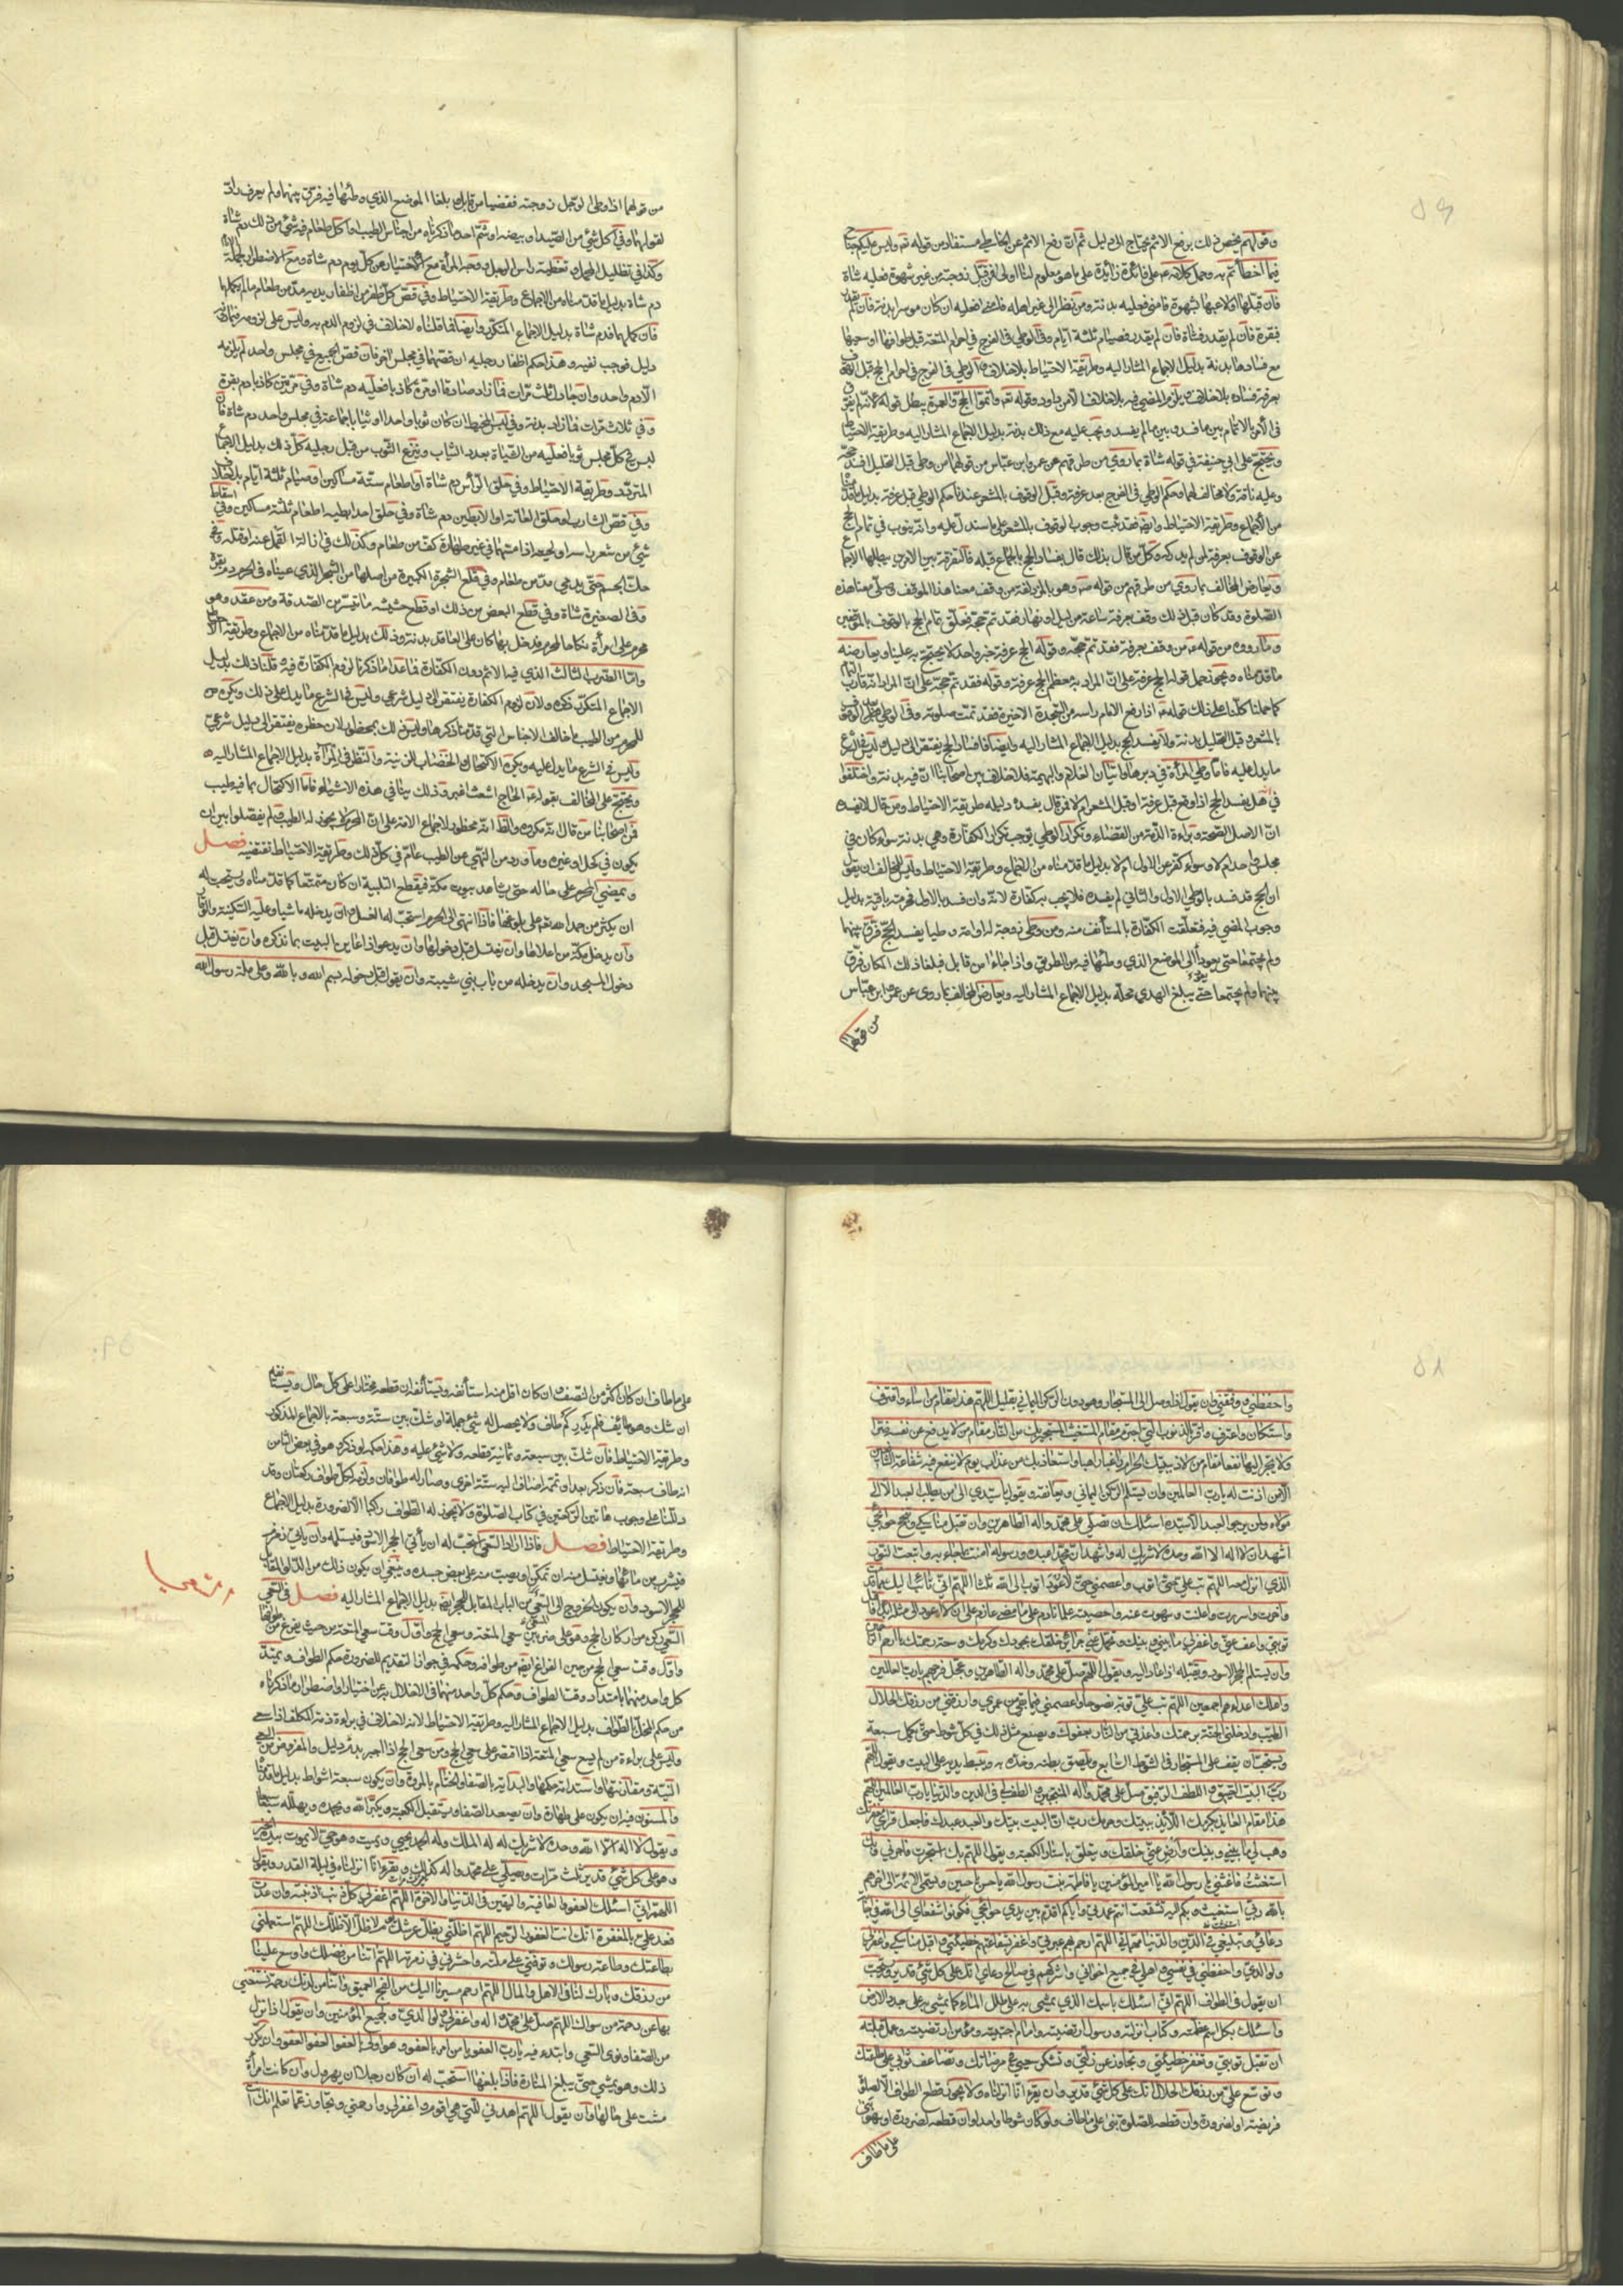 وقولهم يخص ذلك برفع الاثم يحتاج الى دليل ثم ان رفع الاثم عن الخاطي مستفاد من قوله تعه وليس عليكم جناح
فيما اخطأتم به وحمل كلامه عه على فائدة زائدة على ما هو معلوم لنا اولى فمن قبل زوجته من غير شهوة فعليه شاة
فان قبلها او لاعبها بشهوة فامنى فعليه بدنة ومن نظر الى غير اهله فامنى فعليه ان كان موسرا بدنة فان لم يقدر
فبقرة فان لم يقدر فشاة فان لم يقدر فصيام ثلثة ايام وفي الوطي في الفرج في احرام المتعة قبل طوافها او سعيها
مع فسادها بدنة بدليل الاجماع المشار اليه وطريقة الاحتياط بلا خلاف وفي الوطي في الفرج في احرام الحج قبل الوقوف
بعرفة فساده بلا خلاف ويلزم المضي فيه بلا خلاف الا من داود وقوله تعه واتموا الحج والعمرة يبطل قوله لانه لم يفرق
في الامر بالاتمام بين ما فسد وبين ما لم يفسد ويجب عليه مع ذلك بدنة بدليل الاجماع المشار اليه وطريقة الاحتياط
ويحتج على ابي حنيفة في قوله شاة بما روي من طرقهم عن عمر وابن عباس من قولهما من وطي قبل التحلل افسد حجه
وعليه ناقة ولا مخالف لهما وحكم الوطي في الفرج بعد عرفة وقبل الوقوف بالمشعر عندنا حكم الوطي قبل عرفة بدليل ما قدمناه
من الاجماع وطريقة الاحتياط وايضا فقد ثبت وجوب الوقوف بالمشعر على ما سندل عليه وانه ينوب في تمام الحج
عن الوقوف بعرفة لمن لم يدركه وكل من قال بذلك قال بفساد الحج بالجماع قبله فالتفرقة بين الامرين يبطلها الاجماع
ويعارض المخالف بما روي من طرقهم من قوله صه وهو بالمزدلفة من وقف معنا هذا الموقف وصلى معنا هذه
الصلوة وقد كان قبل ذلك وقف بعرفة ساعة من ليل او نهار فقد تم حجه فعلق تمام الحج بالوقوف بالموقفين
وما رووه من قوله عه من وقف بعرفة فقد تم حجه وقوله الحج عرفة خبر واحد لا يحتج به علينا ويعارضه
ما قدمناه ويجوز حمل قوله الحج عرفة على ان المراد به معظم الحج عرفة وقوله فقد تم حجه على ان المراد انه قارب التمام
كما حملنا كلنا على ذلك قوله عه اذا رفع الامام راسه من السجدة الاخيرة فقد تمت صلوته وفي الوطي بعد الوقوف
بالمشعر وقبل التحليل بدنة ولا يفسد الحج بدليل الاجماع المشار اليه وايضا فافساد الحج يفتقر الى دليل وليس في الشرع
ما يدل عليه فاما وطي المرأة في دبرها واتيان الغلام والبهيمة فلا خلاف بين اصحابنا ان فيه بدنة واختلفوا
في هل يفسد الحج اذا وقع قبل عرفة او قبل المشعر ام لا فمن قال يفسده دليله طريقة الاحتياط ومن قال لا يفسده
ان الاصل الصحة وبراءة الذمة من القضاء وتكرار الوطي يوجب تكرار الكفارة وهي بدنة سواء كان في
مجلس واحد ام لا وسواء كفر عن الاول ام لا بدليل ما قدمناه من الاجماع وطريقة الاحتياط وليس للمخالف ان يقول
ان الحج قد فسد بالوطي الاول والثاني لم يفسده فلا يجب به كفارة لانه وان فسد بالاول فحرمته باقية بدليل
وجوب المضي فيه فتعلقت الكفارة بالمستأنف منه ومن وطي زوجة له او امة وطيا يفسد الحج فرق بينهما
ولم يجتمعا حتى يعودا الى الموضع الذي وطئها فيه من الطريق واذا جاءا من قابل فبلغا ذلك المكان فرق
بينهما ولم يجتمعا حتى يبلغ الهدي محله بدليل الاجماع المشار اليه ويعارض المخالف بما روي عن عمر وابن عباس
من قولهما
من قولهما اذا وطئ الرجل زوجته فقضيا من قابل وبلغا الموضع الذي وطئها فيه فرق بينهما ولم يعرف راد
لقولهما وفي اكل شيء من الصيد او بيضه او شم احد ما ذكرناه من اجناس الطيب او اكل طعام فيه شيء من ذلك دم شاة
وكذا في تظليل المحمل وتغطية راس الرجل ووجه المرأة مع الاختيار عن كل يوم دم شاة ومع الاضطرار لجملة الايام
دم شاة بدليل ما قدمناه من الاجماع وطريقة الاحتياط وفي قص كل ظفر من اظفار يديه مد من طعام ما لم يكملها
فان كملها فدم شاة بدليل الاجماع المتكرر وايضا فما قلناه لا خلاف في لزوم الدم به وليس على لزومه فيما دونه
دليل فوجب نفيه وهذا حكم اظفار رجليه ان قصها في مجلس اخر فان قص الجميع في مجلس واحد لم يلزمه
الا دم واحد وان جادل ثلث مرات فما زاد صادقا او مرة كاذبا فعليه دم شاة وفي مرتين كاذبا دم بقرة
وفي ثلاث مرات فما زاد بدنة وفي لبس المخيط ان كان ثوبا واحدا او ثيابا جماعة في مجلس واحد دم شاة فان
لبس في كل مجلس ثوبا فعليه من الشياة بعدد الثياب وينزع الثوب من قبل رجليه كل ذلك بدليل الاجماع
المتردد وطريقة الاحتياط وفي حلق الرأس دم شاة او اطعام ستة مساكين او صيام ثلثة ايام بلا خلاف
وفي قص الشارب او حلق العانة او الابطين دم شاة وفي حلق احد ابطيه اطعام ثلثة مساكين وفي اسقاط
شيء من شعر راسه او لحيته اذا مسهما في غير طهارة كف من طعام وكذلك في ازالة القمل عنه او قتله وفي
حك الجسم حتى يدمي مد من طعام وفي قلع الشجرة الكبيرة من اصلها من الشجر الذي عيناه في الحرم دم بقرة
وفي الصغيرة شاة وفي قطع البعض من ذلك او قطع حشيشه ما تيسر من الصدقة ومن عقد وهو
محرم على امرأة نكاحا لمحرم فدخل بها كان على العاقد بدنة وذلك بدليل ما قدمناه من الاجماع وطريقة الاحتياط
واما الضرب الثالث الذي فيه الاثم دون الكفارة فما عدا ما ذكرنا لزوم الكفارة فيه قلنا ذلك بدليل
الاجماع المتكرر ذكره ولان لزوم الكفارة يفتقر الى دليل شرعي وليس في الشرع ما يدل على ذلك ويكره
للمحرم من الطيب ما خالف الاجناس التي قدمنا ذكرها وليس ذلك بمحظور لان حظره يفتقر الى دليل شرعي
وليس في الشرع ما يدل عليه ويكره الاكتحال والخضاب للزينة والنظر في المرآة بدليل الاجماع المشار اليه
ويحتج على المخالف بقوله عه الحاج اشعث اغبر وذلك ينافي هذه الاشياء فاما الاكتحال بما فيه طيب
فمن اصحابنا من قال انه مكروه والظا انه محظور لاجماع الامة على ان المحرم لا يجوز له الطيب ولم يفصلوا بين ان
يكون في كحل او غيره وما ورد من النهي عن الطيب عام في كل ذلك وطريقة الاحتياط تقتضيه فصل
ويمضي المحرم على حاله حتى يشاهد بيوت مكة فيقطع التلبية ان كان متمتعا كما قدمناه ويستحب له
ان يكثر من حمد الله تعه على بلوغها فاذا انتهى الى الحرم استحب له الغسل وان يدخله ماشيا وعليه السكينة والوقار
وان يدخل مكة من اعلاها وان يغتسل قبل دخولها وان يدعو اذا عاين البيت بما نذكره وان يغتسل قبل
دخول المسجد وان يدخله من باب بني شيبة وان يقول قبل دخوله بسم الله وبالله وعلى ملة رسول الله
واحفظني ووفقني وان يقول اذا وصل الى المستجار وهو دون الركن اليماني بقليل اللهم هذا مقام من اساء واقترف
واستكان واعترف واقر بالذنوب التي اجترم هذا مقام المستغيث المستجير بك من النار مقام من لا يدفع عن نفسه ضرا
ولا يجر اليها نفعا مقام من لاذ ببيتك الحرام راغبا راهبا واستعاذ بك من عذاب يوم لا ينفع فيه شفاعة الشافعين
الا من اذنت له يا رب العالمين وان يستلم الركن اليماني ويعانقه ويقول يا سيدي الى من يطلب العبد الا الى
مولاه ولمن يرجو العبد الا سيده اسئلك ان تصلي على محمد واله الطاهرين وان تقبل مناسكي وتنجح حوائجي
اشهد ان لا اله الا الله وحده لا شريك له واشهد ان محمدا عبده ورسوله امنت بما جاء به واتبعت النور
الذي انزل معه اللهم تب علي حتى اتوب واعصمني حتى لا اعود اتوب الى الله ثلثا اللهم اني تائب اليك مما قدمت
واخرت واسررت واعلنت وسهوت عنه واحصيته علما نادم على ما مضى عازم على ان لا اعود الى مثله ابدا فاقبل
توبتي واعف عني واغفر لي ما بيني وبينك وتحمل عني جرائر خلقك بجودك وكرمك وسعة رحمتك يا ارحم الراحمين
وان يستلم الحجر الاسود ويقبله اذا عاد اليه ويقول اللهم صل على محمد واله الطاهرين وعجل فرجهم يا رب العالمين
واهلك اعداءهم اجمعين اللهم تب علي توبة نصوحا واعصمني فيما بقي من عمري وارزقني من رزقك الحلال
الطيب وادخلني الجنة برحمتك واعذني من النار بعفوك ويصنع مثل ذلك في كل شوط حتى يكمل سبعة
ويستحب ان يقف على المستجار في الشوط السابع ويلصق بطنه وخده به ويبسط يديه على البيت ويقول اللهم
رب البيت العتيق واللطف الرفيق صل على محمد واله المنتجبين والطف لي في الدين والدنيا يا رب العالمين اللهم
هذا مقام العائذ بكرمك اللائذ ببيتك وحرمك رب ان البيت بيتك والعبد عبدك فاجعل قراي مغفرتك
وهب لي ما بيني وبينك وارض عني خلقك ويتعلق باستار الكعبة ويقول اللهم بك استجرت فاجرني وبك
استغثت فاغثني يا رسول الله يا امير المؤمنين يا فاطمة بنت رسول الله يا حسن يا حسين ويسمي الائمة الى اخرهم
بالله ربي استغيث وبكم اليه تشفعت انتم عمدتي واياكم اقدم بين يدي حوائجي فكونوا شفعائي الى الله في اجابة
دعائي وتبليغي في الدين والدنيا مناي اللهم ارحم بهم عبرتي واغفر بشفاعتهم خطيئتي واقبل مناسكي واغفر لي
ولوالدي واحفظني في نفسي واهلي وجميع اخواني واشركهم في صالح دعاي انك على كل شيء قدير ويستحب
ان يقول في الطواف اللهم اني اسئلك باسمك الذي يمشى به على ظلل الماء كما يمشى به على جدد الارض
واسئلك بكل اسم عظمته وكتاب انزلته ورسول ارتضيته وامام اجتبيته ومؤمن ارتضيته وعمل قبلته
ان تقبل توبتي وتغفر خطيئتي وتجاوز عن زلتي وتشكر سعيي في مرضاتك وتضاعف ثوابي على طاعتك
وتوسع علي من رزقك الحلال انك على كل شيء قدير وان يقرء انا انزلناه ولا يجوز قطع الطواف الا لصلوة
فريضة او لضرورة وان قطعه للصلوة بنى على ما طاف ولو كان شوطا واحدا وان قطعه لضرورة او سهو بنى
على ما طاف
على ما طاف ان كان اكثر من النصف وان كان اقل منه استأنفه ويستأنفه ان قطعه مختارا على كل حال ويستأنفه
ان شك وهو طائف فلم يدر كم طاف ولا يحصل له شيء جملة او شك بين ستة وسبعة بالاجماع المذكور
وطريقة الاحتياط فان شك بين سبعة وثمانية قطعه ولا شيء عليه وهذا حكمه لو ذكره وهو في بعض الثامن
انه طاف سبعة فان ذكر بعد ان تممه اضاف اليه ستة اخرى وصار له طوافان ولزمه لكل طواف ركعتان وقد
دللنا على وجوب هاتين الركعتين في كتاب الصلوة ولا يجوز له الطواف راكبا الا لضرورة بدليل الاجماع
وطريقة الاحتياط فصل فاذا اراد السعي استحب له ان يأتي الحجر الاسود فيستلمه وان ياتي زمزم
فيشرب من مائها ويغتسل منه ان تمكن او يصب منه على بعض جسده وينبغي ان يكون ذلك من الدلو المقابل
للحجر الاسود وان يكون الخروج الى السعي من الباب المقابل للحجر ايضا بدليل الاجماع المشار اليه فصل في السعي
السعي ركن من اركان الحج وهو على ضربين سعي المتعة وسعي الحج واول وقت سعي المتعة من حيث يفرغ من طوافها
واول وقت سعي الحج من حين الفراغ ايضا من طوافه وحكمه في جواز التقديم للضرورة حكم الطواف ويمتد
كل واحد منهما بامتداد وقت الطواف وحكم كل واحد منهما في الاخلال به عن اختيار او اضطرار ما ذكرناه
من حكم المخل بالطواف بدليل الاجماع المشار اليه وطريقة الاحتياط لانه لا خلاف في براءة ذمة المكلف اذا سعى
وليس على براءة من لم يسع سعي المتعة اذا اقتصر على سعي الحج ومن سعي الحج اذا انجبر بدم دليل والمفروض من السعي
النية ومقارنتها واستدامة حكمها والبداية بالصفا والختام بالمروة وان يكون سبعة اشواط بدليل ما قدمناه
والمسنون فيه ان يكون على طهارة وان يصعد الصفا ويستقبل الكعبة ويكبر الله ويحمده ويهلله سبعا
ويقول لا اله الا الله وحده لا شريك له له الملك وله الحمد يحيي ويميت وهو حي لا يموت بيده الخير
وهو على كل شيء قدير ثلث مرات ويصلي على محمد واله كذلك ويقرء انا انزلناه في ليلة القدر ويقول
اللهم اني اسئلك العفو والعافية واليقين في الدنيا والاخرة اللهم اغفر لي كل ذنب اذنبته وان عدت
فعد علي بالمغفرة انك انت الغفور الرحيم اللهم اظلني بظل عرشك يوم لا ظل الا ظلك اللهم استعملني
بطاعتك وطاعة رسولك وتوفني على ملته واحشرني في زمرته اللهم اتنا من فضلك واوسع علينا
من رزقك وبارك لنا في الاهل والمال اللهم ارحم مسيرنا اليك من الفج العميق واتنا من لدنك رحمة تغنينا
بها عن رحمة من سواك اللهم صل على محمد واله واغفر لي ولوالدي ولجميع المؤمنين وان يقول اذا نزل
من الصفا ونوى السعي وابتدء فيه يا رب العفو يا من امر بالعفو وهو اولى بالعفو العفو العفو العفو وان يكرر
ذلك وهو يمشي حتى يبلغ المنارة فاذا بلغها استحب له ان كان رجلا ان يهرول وان كانت امرأة
مشت على حالها وان يقول اللهم اهدني للتي هي اقوم واغفر لي وارحمني وتجاوز عما تعلم انك انت